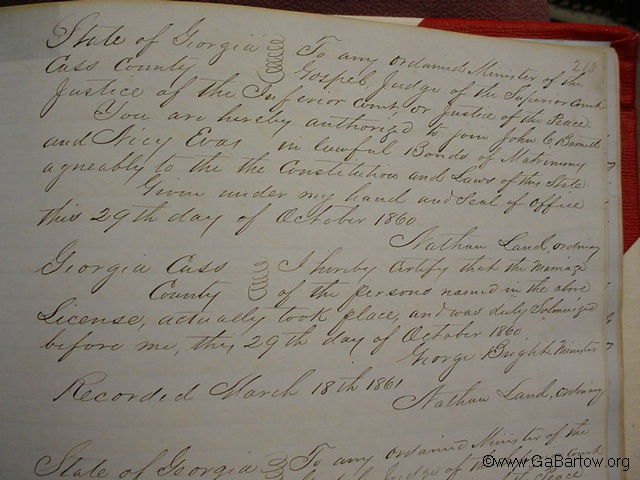 State of Georgia To any ordained Minister of the 213
Cass County Gospel, Judge of the Superior Court
Justice of the Inferior Court, or Justice of the Peace.
You are hereby authorized to join John C Barnett
and Nicy Evas in lawful Bonds of Matrimony
agreeably to the the Constitution and Laws of this State
Given under my hand and Seal of Office
this 29th day of October 1860
Nathan Land, ordinary
Georgia Cass I hereby Certify that the Marriage
County of the persons named in the above
License, actually took place, and was duly Solmnized
before me, this 29th day of October 1860
George Bright Minister
Recorded March 18th 1861
Nathan Land, ordinary
State of Georgia To any ordained Minister of the
Judge of the Court
©www.GaBartow.org